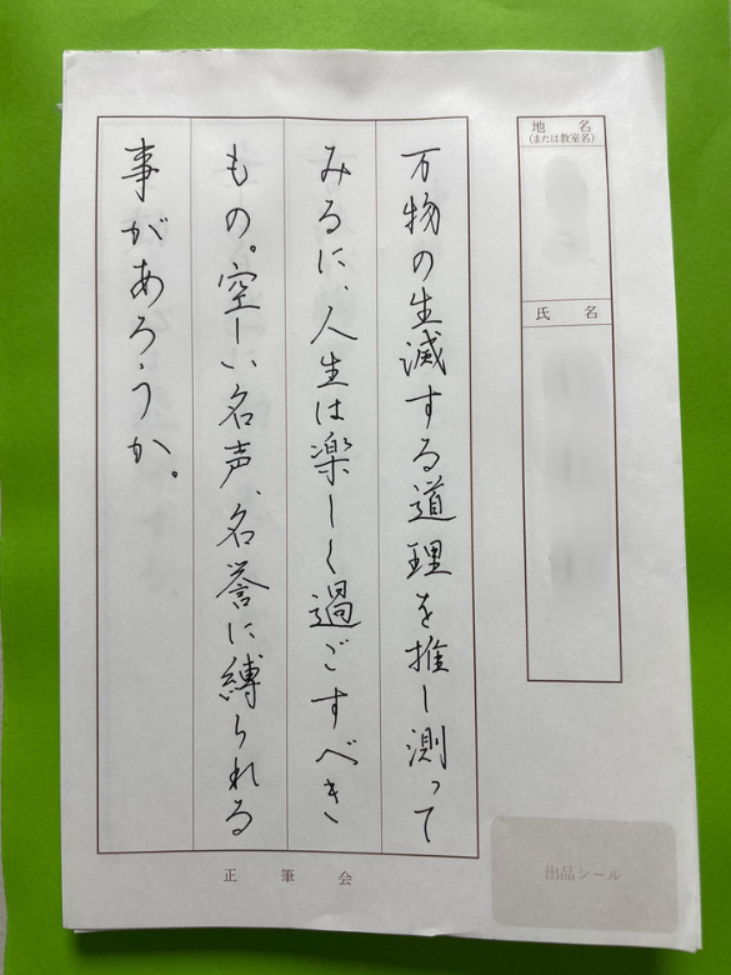 地名
(または教室名)
氏名
万物の生滅する道理を推し測って
みるに、人生は楽しく過ごすべき
もの。空しい名声、名誉に縛られる
事があろうか。
正筆会
出品シール